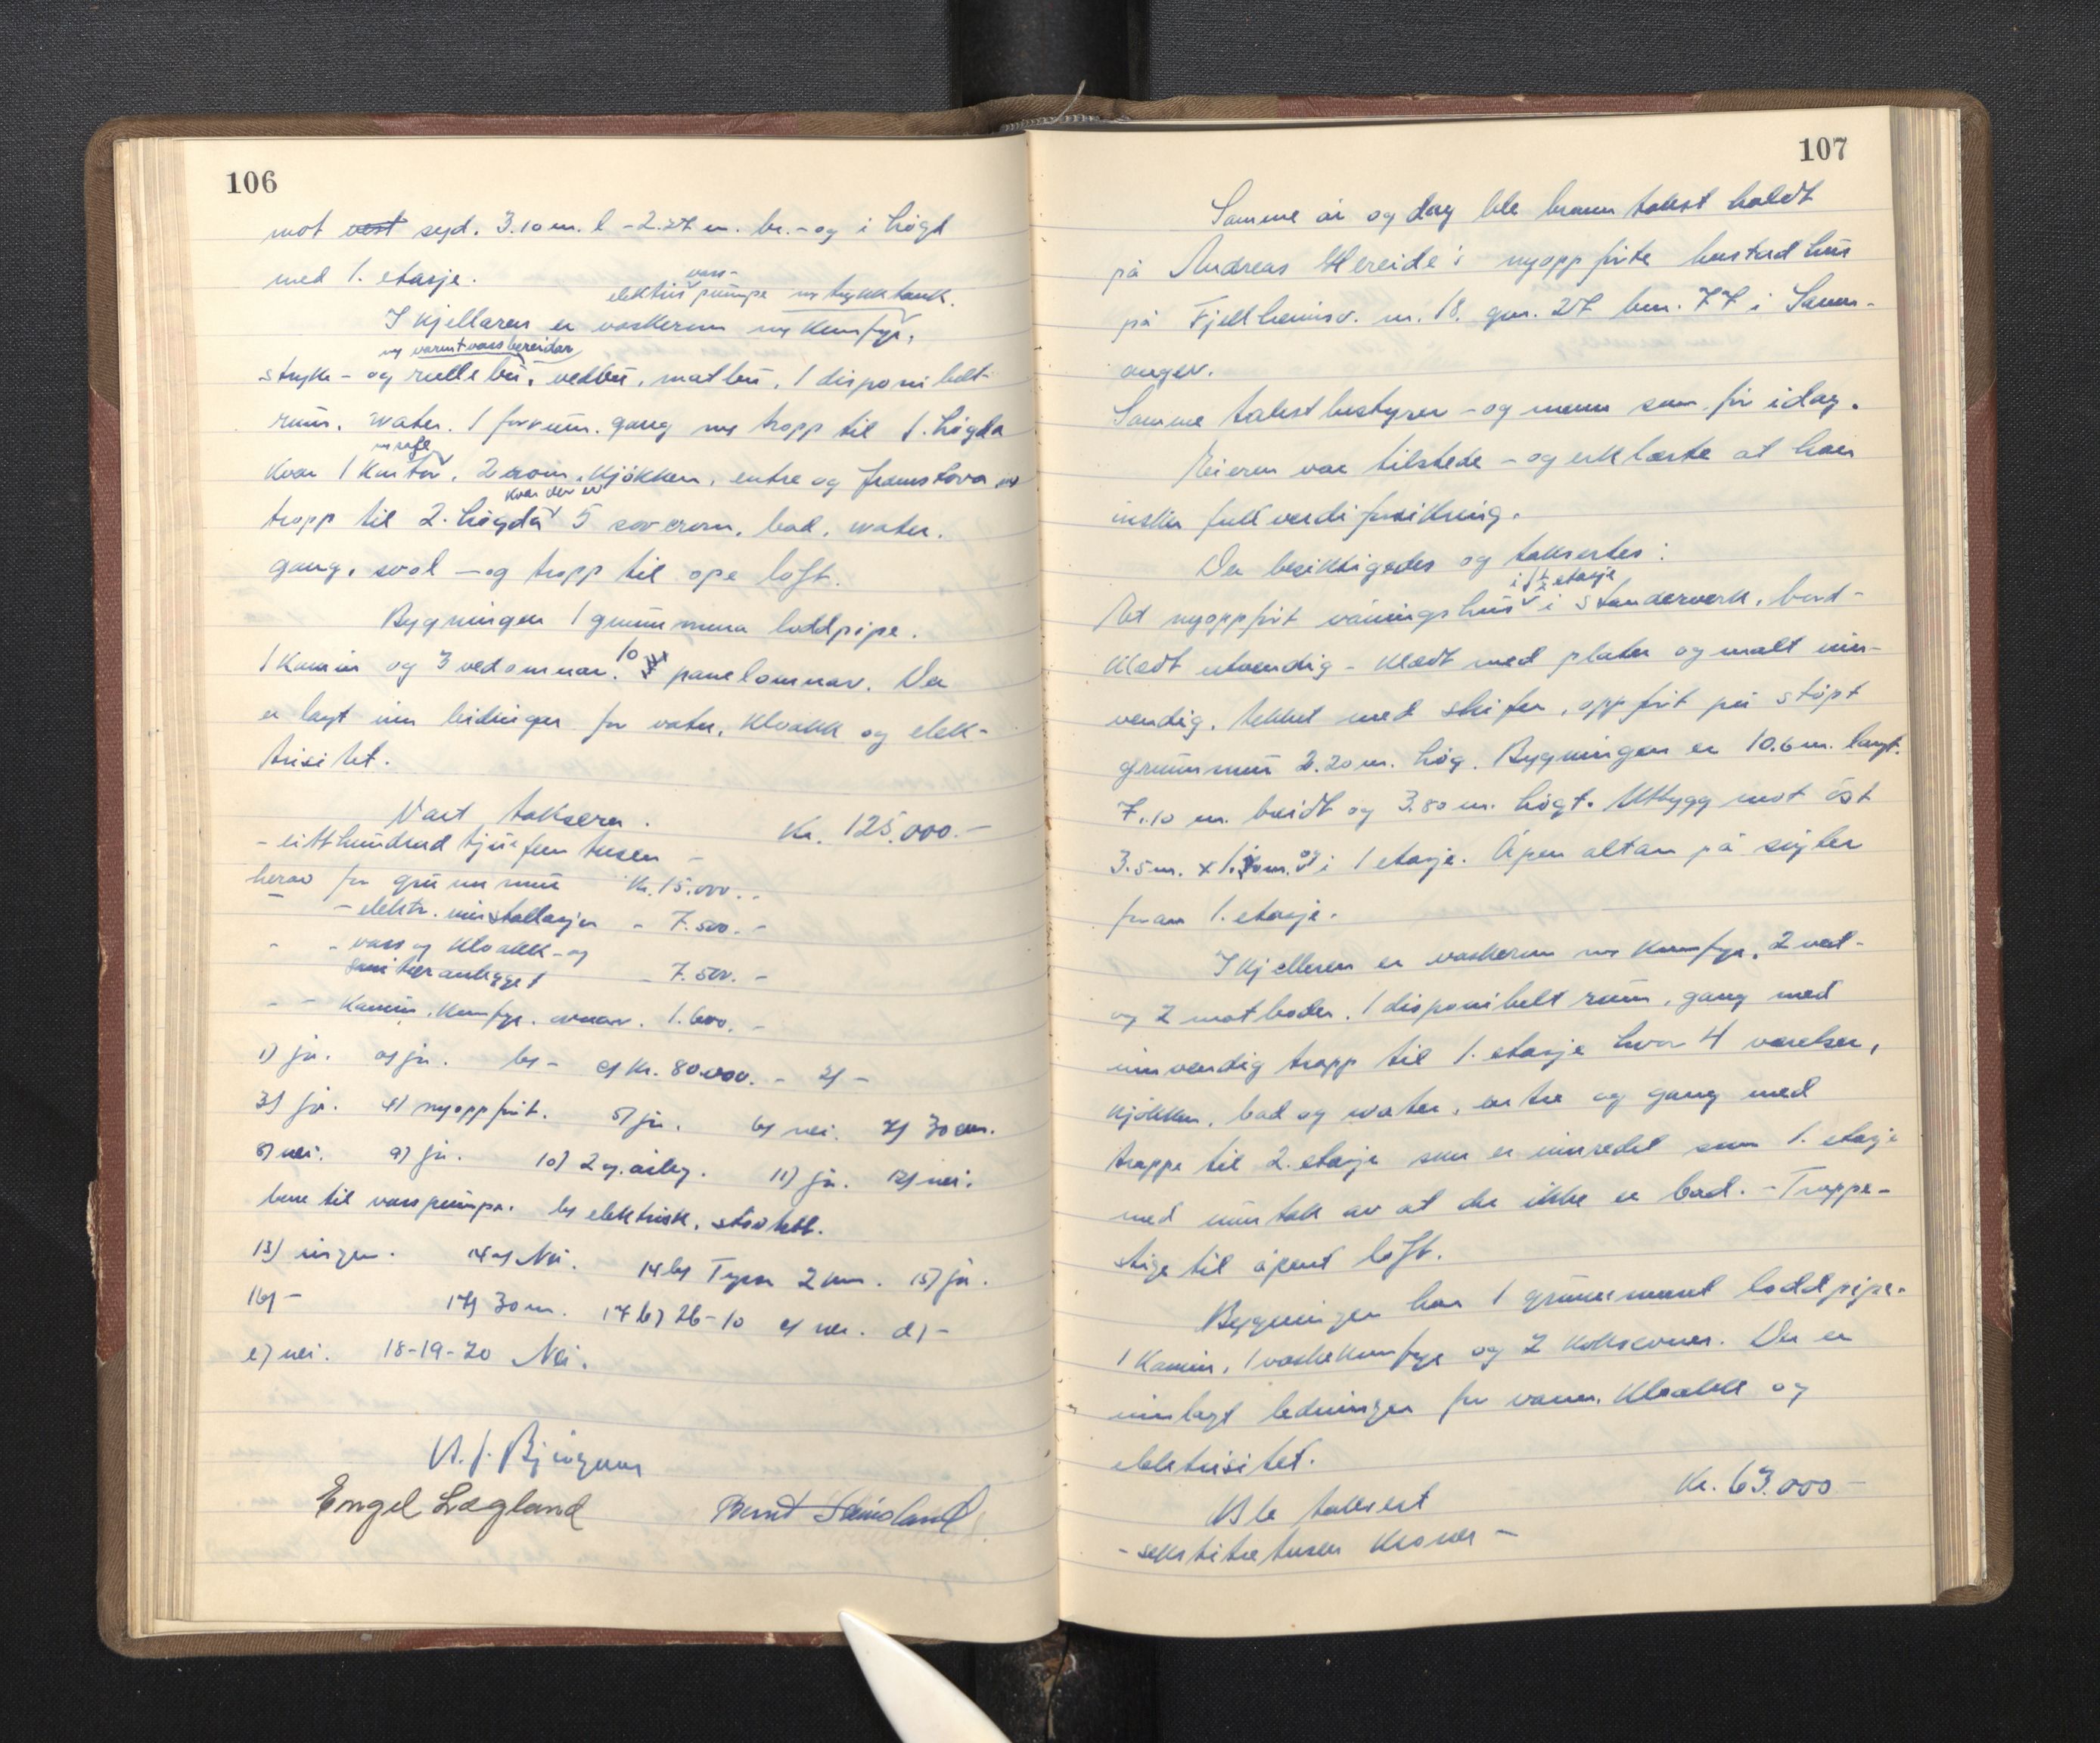 106
mot vest syd. 3.10 m. l - 2.27 m. br. - og i högd
med 1. etasje.
vass-
elektrisk pumpe m trykktank.
I kjellaren er vaskerom m komfyr,
m varmtvassbereidar
stryke- og rullebu, vedbu, matbu, 1 disponibelt
rum. water. 1 forrum. gang m tropp til 1. högda
kvar 1 kontor, 2 rom, kjökken, entre og framstova m
kvar der er
tropp til 2. högda 5 soverom, bad, water.
gang, sval - og tropp til ope loft.
Bygningen 1 grunnmura loddpipe.
1 kamin og 3 vedomnar. 10 panelomnar. Der
er lagt inn leidninger for vatn, kloakk og elek-
trisitet.
Vart taksera. Kr. 125.000.-
- eitthundrad tjuefem tusen -
herav for grunnmur Kr. 15.000.-
- - elektr. installasjon - 7.500.-
- - vass og kloakk - og
sanitæranlegget - 7.500.-
- - kamin, komfyr, omnar. 1.600.-
1) ja. a) ja. b) - c) Kr. 80.000.- 2) -
3) ja. 4) nyoppfört. 5) ja. 6) nei. 7) 30 cm.
8) nei. 9) ja. 10) 2 g. årleg. 11) ja. 12) nei.
bare til vasspumpe. b) elektrisk,
13) ingen. 14 a) Nei. 14 b) Tysse 2 km. 15) ja.
16) - 17) 30 m. 17 b) 26-10 c) nei. d) -
e) nei. 18-19-20 Nei.
Engel Lægland
107
Samme år og dag ble branntakst holdt
på Andreas Hereide's nyoppförte bustadhus
på Fjellheimsv. nr. 18. gnr. 27 bnr. 77 i Samn-
anger.
Samme takstbestyrer - og menn som för idag.
Eieren var tilstede - og erklærte at han
önsker fullverdiforsikring.
Der besiktigedes og taksertes:
i 1 1/2 etasje
Et nyoppfört våningshus i standerverk, bord-
klædt utvendig - klædt med plater og malt inn-
vendig, tekket med skifer, oppfört på stöpt
grunnmur 2.20 m. hög. Bygningen er 10.6 m. langt.
7.10 m. breidt og 3.80 m. högt. Utbygg mot öst
3.5 m. x m. og i 1 etasje. Åpen altan på söyler
foran 1. etasje.
I kjelleren er vaskerom m komfyr, 2 ved-
og 2 matboder. 1 disponibelt rum, gang med
innvendig trapp til 1. etasje hvor 4 værelser,
kjökken, bad og water, entre og gang med
trappe til 2. etasje som er innredet som 1. etasje
med unntak av at der ikke er bad. - Trappe-
stige til åpent loft.
Bygningen har 1 grunnmuret loddpipe.
1 kamin, 1 vaskekomfyr og 2 koksovner. Der er
innlagt ledninger for vann, kloakk og
elektrisitet.
Ble taksert Kr. 63.000 -
- sekstitre tusen kroner -